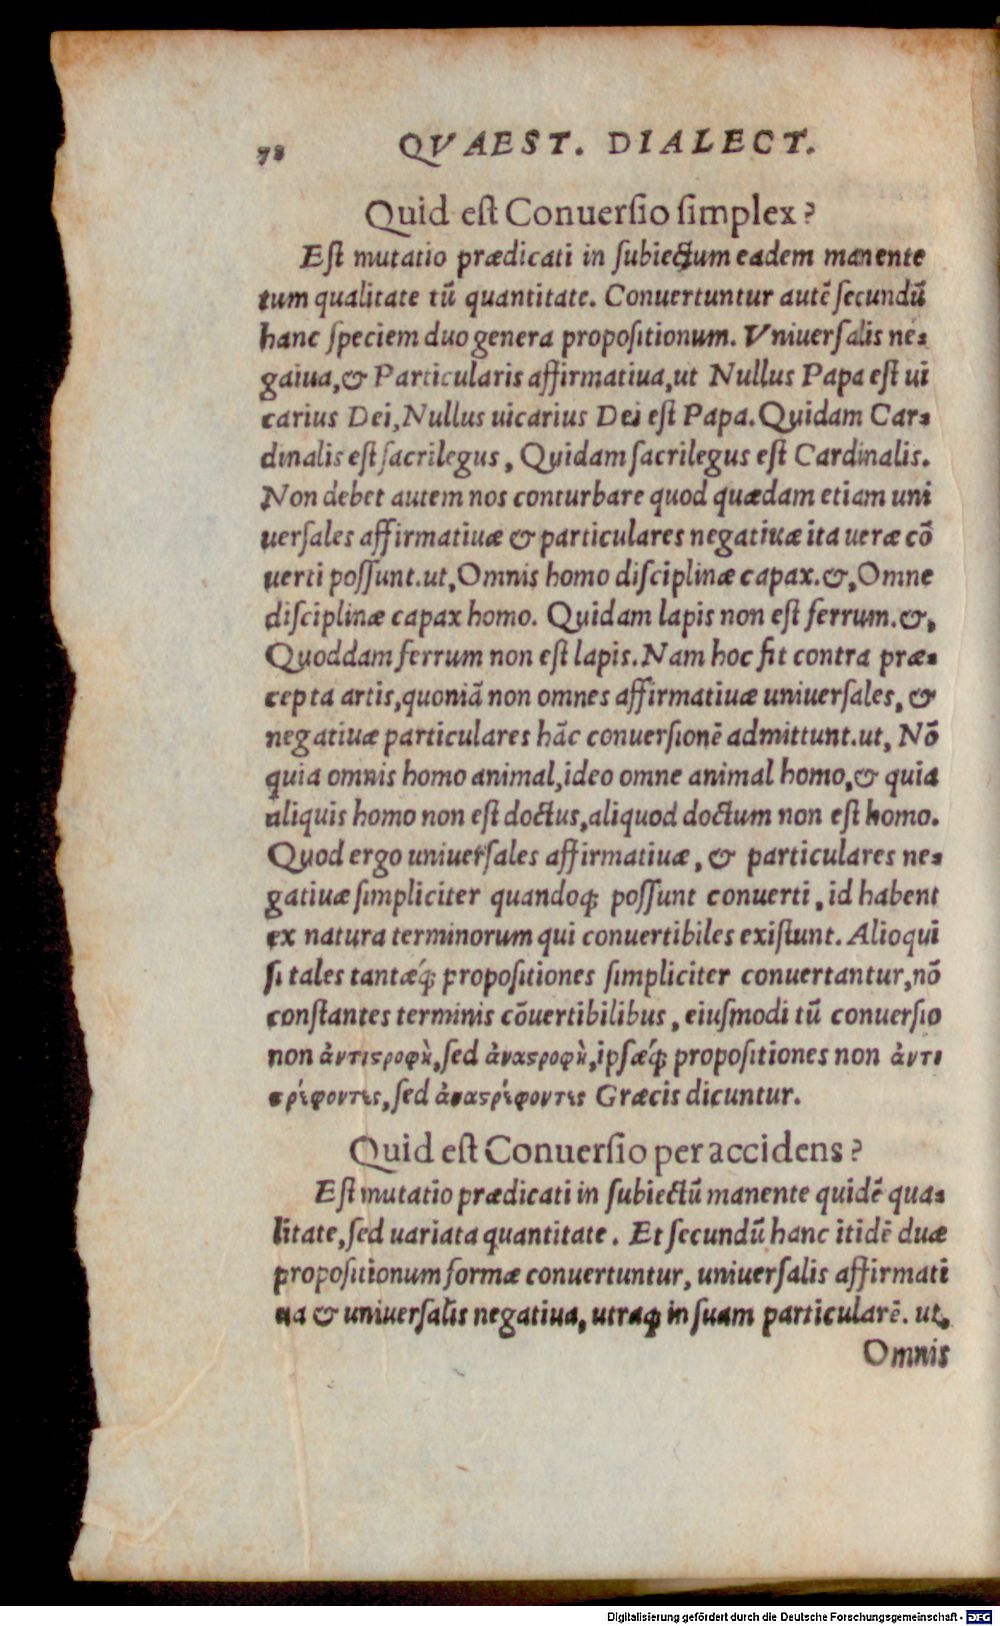 78 QVAEST. DIALECT.
Quid est Conuersio simplex?
Est mutatio prædicati in subiectum eadem manente
tum qualitate tū quantitate. Conuertuntur autē secundū
hanc speciem duo genera propositionum. Vniuersalis ne-
gaiua, & Particularis affirmatiua, ut Nullus Papa est ui
carius Dei, Nullus uicarius Dei est Papa. Quidam Car-
dinalis est sacrilegus, Quidam sacrilegus est Cardinalis.
Non debet autem nos conturbare quod quædam etiam uni
uersales affirmatiuæ & particulares negatiuæ ita ueræ cō
uerti possunt. ut, Omnis homo disciplinæ capax. &, Omne
disciplinæ capax homo. Quidam lapis non est ferrum. &,
Quoddam ferrum non est lapis. Nam hoc fit contra præ-
cepta artis, quoniā non omnes affirmatiuæ uniuersales, &
negatiuæ particulares hāc conuersionē admittunt. ut, Nō
quia omnis homo animal, ideo omne animal homo, & quia
aliquis homo non est doctus, aliquod doctum non est homo.
Quod ergo uniuersales affirmatiuæ, & particulares ne-
gatiuæ simpliciter quandoq; possunt conuerti, id habent
ex natura terminorum qui conuertibiles existunt. Alioqui
si tales tantæq́; propositiones simpliciter conuertantur, nō
constantes terminis cōuertibilibus, eiusmodi tū conuersio
non ἀντιϛροφὴ, sed ἀναϛροφὴ, ipsæq́; propositiones non ἀντι
ϛρέφοντες, sed ἀναϛρέφοντες Græcis dicuntur.
Quid est Conuersio per accidens?
Est mutatio prædicati in subiectū manente quidē qua-
litate, sed uariata quantitate. Et secundū hanc itidē duæ
propositionum formæ conuertuntur, uniuersalis affirmati
ua & uniuersalis negatiua, utraq; in suam particularē. ut,
Omnis
Digitalisierung gefördert durch die Deutsche Forschungsgemeinschaft - DFG